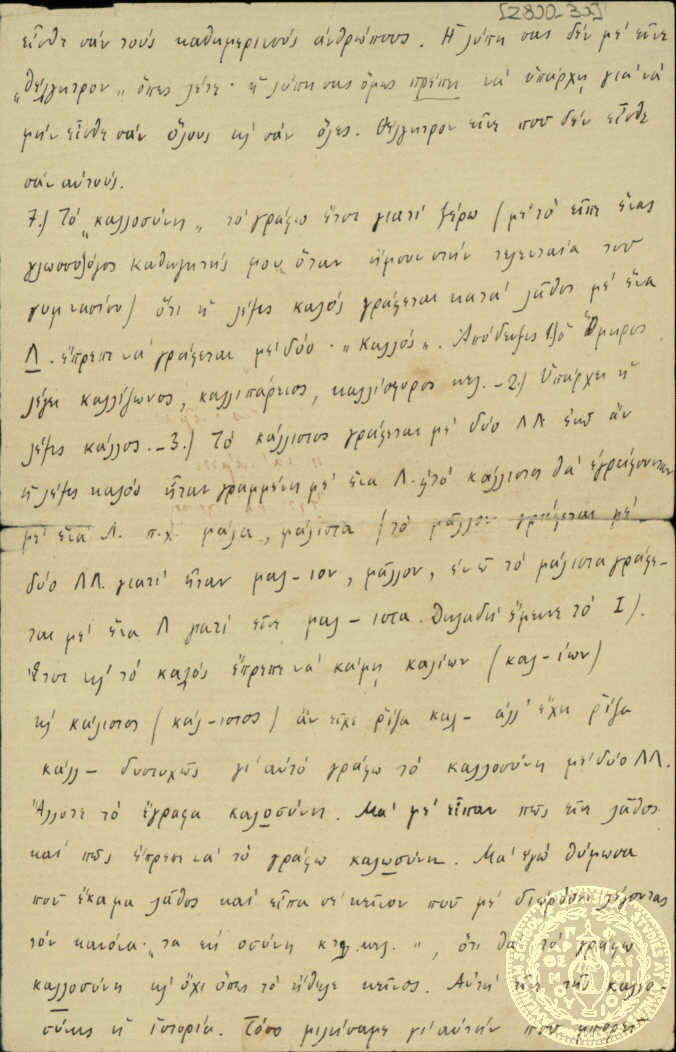 [2800-32]
εἶσθε σάν τούς καθημερινούς ἀνθρώπους. Ἡ λύπη σας δέν μέ εἶνε
„θέλγητρον„ ὅπως λέτε· ἡ λύπη σας ὅμως πρέπει νά ὑπάρχῃ γιά νά
μήν εἶσθε σάν ὅλους κι' σάν ὅλες. Θέλγητρον εἶνε πού δέν εἶσθε
σάν αὐτούς.
7.) Τό „καλλοσύνη„ τό γράφω ἔτσι γιατί ξέρω (μέ τό εἶπε ἕνας
γλωσσολόγος καθηγητής μου ὅταν ἤμουν στήν τελευταία τοῦ
γυμνασίου) ὅτι ἡ λέξις καλός γράφεται κατά λᾶθος μέ ἕνα
Λ. ἔπρεπε νά γράφεται μέ δύο· „καλλός„. Ἀπόδειξις 1) ὁ Ὅμηρος
λέγει καλλίζωνος, καλλιπάρειος, καλλίσφυρος κλ. – 2.) Ὑπάρχει ἡ
λέξις κάλλος. – 3.) Τό κάλλιστος γράφεται μέ δύο ΛΛ ἐνῶ ἄν
ἡ λέξις καλός ἦταν γραμμένη μέ ἕνα Λ. τό κάλλιστος θά ἐγράφονταν
μέ ἕνα Λ. π.χ. μάλα, μάλιστα (τό μᾶλλον γράφεται μέ
δύο ΛΛ. γιατί ἦταν μαλ-ιον, μᾶλλον, ἐνῶ τό μάλιστα γράφε-
ται μέ ἕνα Λ γιατί εἶνε μαλ-ιστα. Δηλαδή ἔμεινε τό Ι).
Ἔτσι κι' τό καλός ἔπρεπε νά κάμῃ καλίων (καλ-ίων)
κι' κάλιστος (κάλ-ιστος) ἄν εἶχε ρίζα καλ- ἀλλ' ἔχει ρίζα
κάλλ- δυστυχῶς γι' αὐτό γράφω τό καλλοσύνη μέ δύο ΛΛ.
Ἄλλοτε τό ἔγραφα καλοσύνη. Μά μέ εἶπαν πῶς εἶνε λᾶθος
καί πῶς ἔπρεπε νά τό γράφω καλωσύνη. Μά ἐγώ θύμωσα
πού ἔκαμα λᾶθος καί εἶπα σέ κεῖνον πού μέ διώρθωσε λέγοντας
τόν κανόνα· „τα εἰς οσύνη κλ. κλ.", ὅτι θά τό γράφω
καλλοσύνη κι' ὄχι ὅπως τό ἤθελε κεῖνος. Αὐτή εἶνε τῆς καλλο-
σύνης ἡ ἱστορία. Τόσο μιλήσαμε γι' αὐτήν πού μπορεῖ